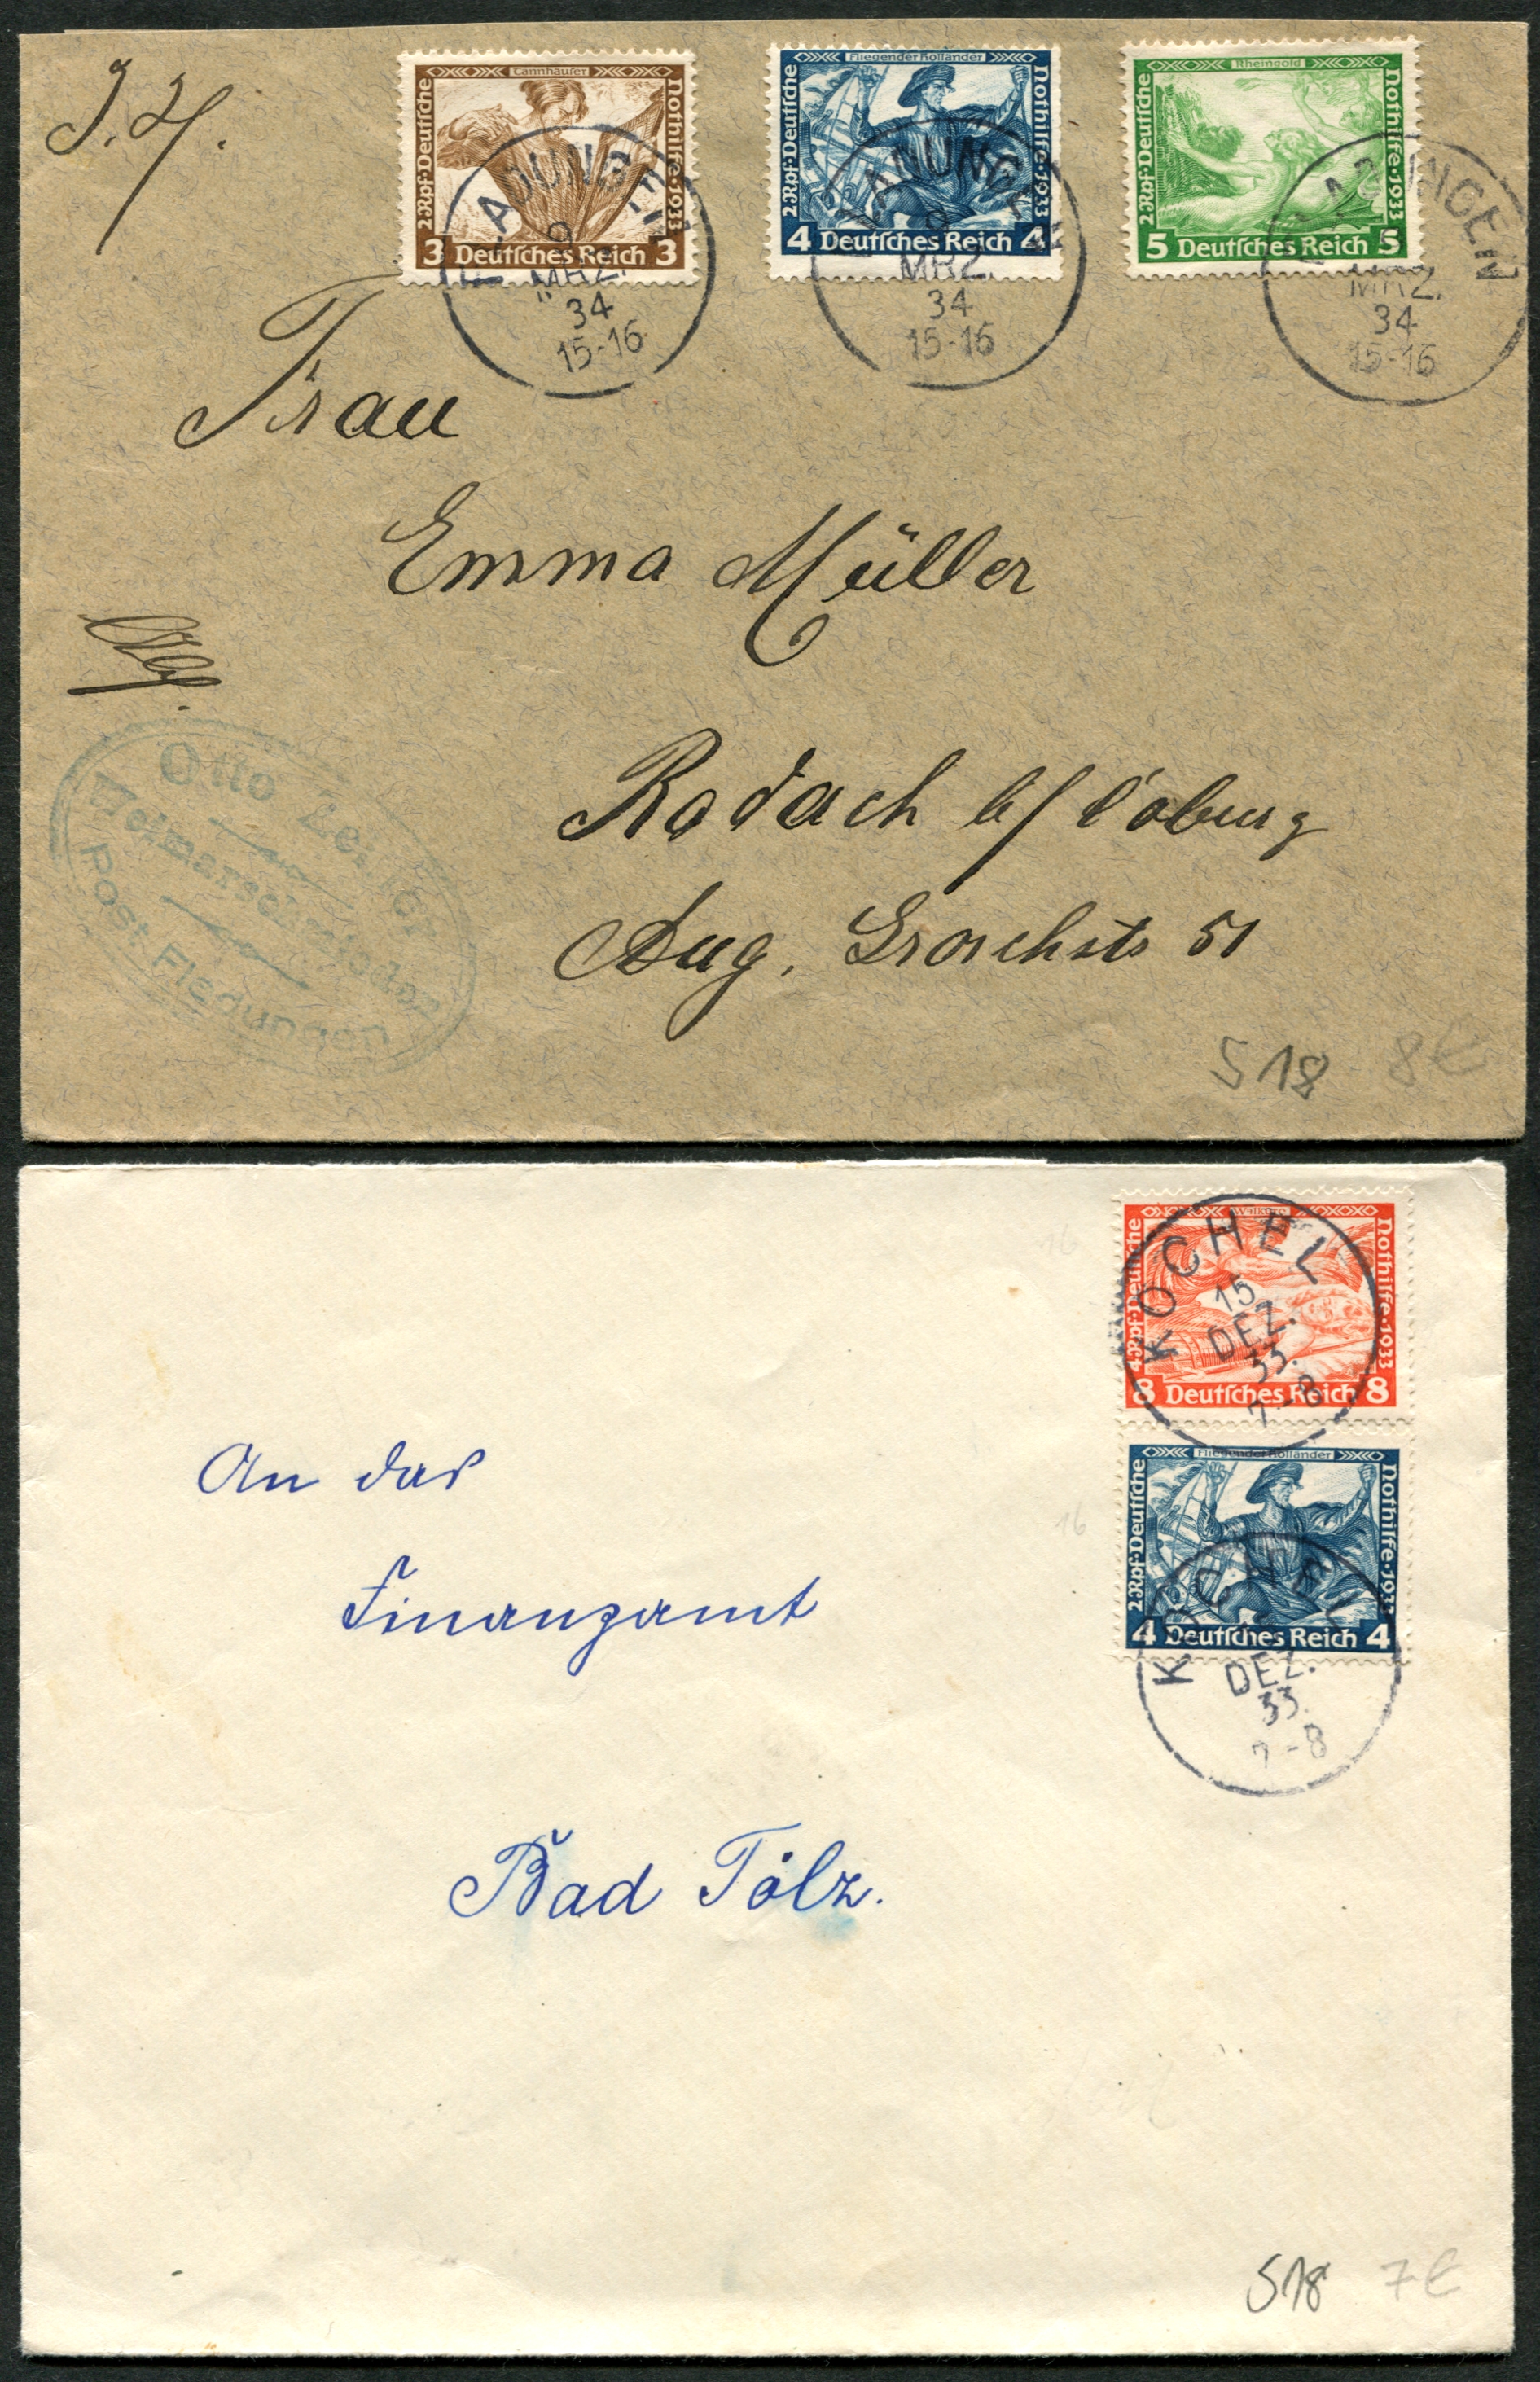 J. H.
Tannhäuser
2 Rpf · Deutsche
Nothilfe · 1933
3 Deutsches Reich 3
Fliegender Holländer
2 Rpf · Deutsche
Nothilfe · 1933
4 Deutsches Reich 4
Rheingold
2 Rpf · Deutsche
Nothilfe · 1933
5 Deutsches Reich 5
FLADUNGEN
9
MRZ.
34
15-16
FLADUNGEN
9
MRZ.
34
15-16
FLADUNGEN
MRZ.
34
15-16
Frau
Emma Müller
Rodach b/ Coburg
Aug. Groschstr 51
Otto
Weimarschmieden
Post Fladungen
S 18 8€
Walküre
4 Rpf · Deutsche
Nothilfe · 1933
8 Deutsches Reich 8
KOCHEL
15
DEZ.
33.
7-8
Fliegender Holländer
2 Rpf · Deutsche
Nothilfe · 1933
4 Deutsches Reich 4
KOCHEL
DEZ.
33.
7-8
16
16
An das
Finanzamt
Bad Tölz.
S18 7€